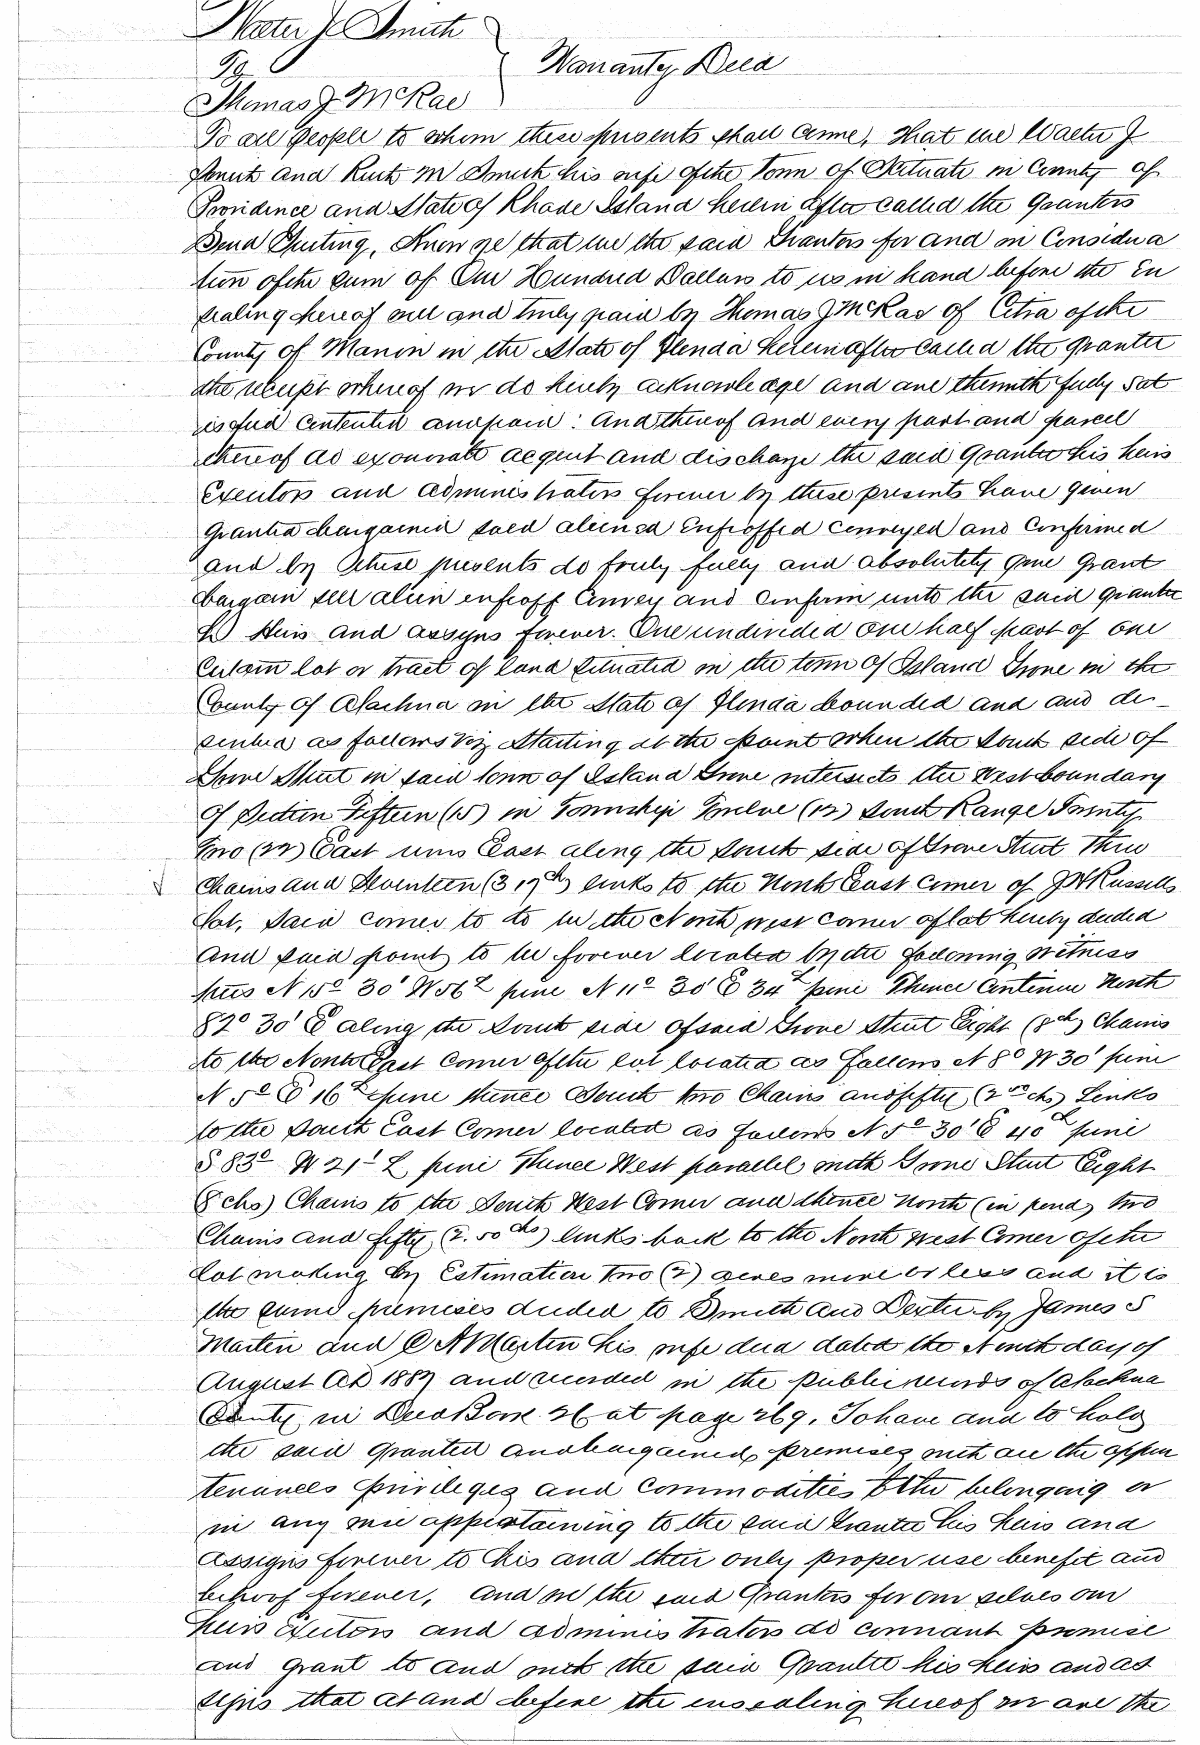 Walter J Smith
To
Warranty Deed
Thomas J McRae
To all people to whom these presents shall come, That we Walter J
Smith and Ruth M Smith his wife of the Town of Scituate in County of
Providence and State of Rhode Island herein after called the Grantors
Send Greeting, Know ye that we the said Grantors for and in Considera
tion of the sum of One Hundred Dollars to us in hand before the En
sealing hereof well and truly paid by Thomas J McRae of Citra of the
County of Marion in the State of Florida hereinafter called the grantee
the receipt whereof we do hereby acknowledge and are therewith fully sat
isfied contented and paid : And thereof and every part and parcel
thereof do exonerate acquit and discharge the said Grantee his heirs
Executors and administrators forever by these presents have given
granted bargained sold aliened Enfeoffed conveyed and confirmed
and by these presents do truly fully and absolutely give grant
bargain sell alien enfeoff Convey and confirm unto the said grantee
his Heirs and assigns forever. One undivided one half part of one
certain lot or tract of land situated in the town of Island Grove in the
County of Alachua in the State of Florida bounded and and de-
scribed as follows viz Starting at the point where the South side of
Grove Street in said town of Island Grove intersects the West boundary
of Section Fifteen (15) in Township Twelve (12) South Range Twenty
two (22) East runs East along the South side of Grove Street Three
Chains and Seventeen (3 17ch) links to the North East corner of J H Russells
lot, Said corner to to be the North west corner of lot hereby deeded
and said point to be forever located by the following Witness
trees N 15° 30' W 56 L pine N 11° 30' E 34 L pine Thence Continue North
82° 30' E along the South side of said Grove Street Eight (8ch) Chains
to the North East Corner of the lot located as follows N 8° W 30' pine
N 5° E 16 L pine thence South two Chains and fifty (2 50 chs) Links
to the South East Corner located as follows N 5° 30' E 40 L pine
S 83° W 21 L pine Thence West parallel with Grove Street Eight
(8 chs) Chains to the South West Corner and thence North (in pond) two
Chains and fifty (2.50 chs) links back to the North West Corner of the
lot making by Estimation two (2) acres more or less and it is
the same premises deeded to Smith and Dexter by James S
Martin and C A Martin his wife deed dated the Ninth day of
August AD 1887 and recorded in the public records of Alachua
County in Deed Book 26 at page 269. To have and to hold
the said granted and bargained premises with all the appur
tenances privileges and commodities to the belonging or
in any wise appertaining to the said Grantee his heirs and
assigns forever to his and their only proper use benefit and
behoof forever, and we the said Grantors for our selves our
heirs Exutors and administrators do covenant promise
and grant to and with the said Grantee his heirs and as
signs that at and before the ensealing hereof we are the